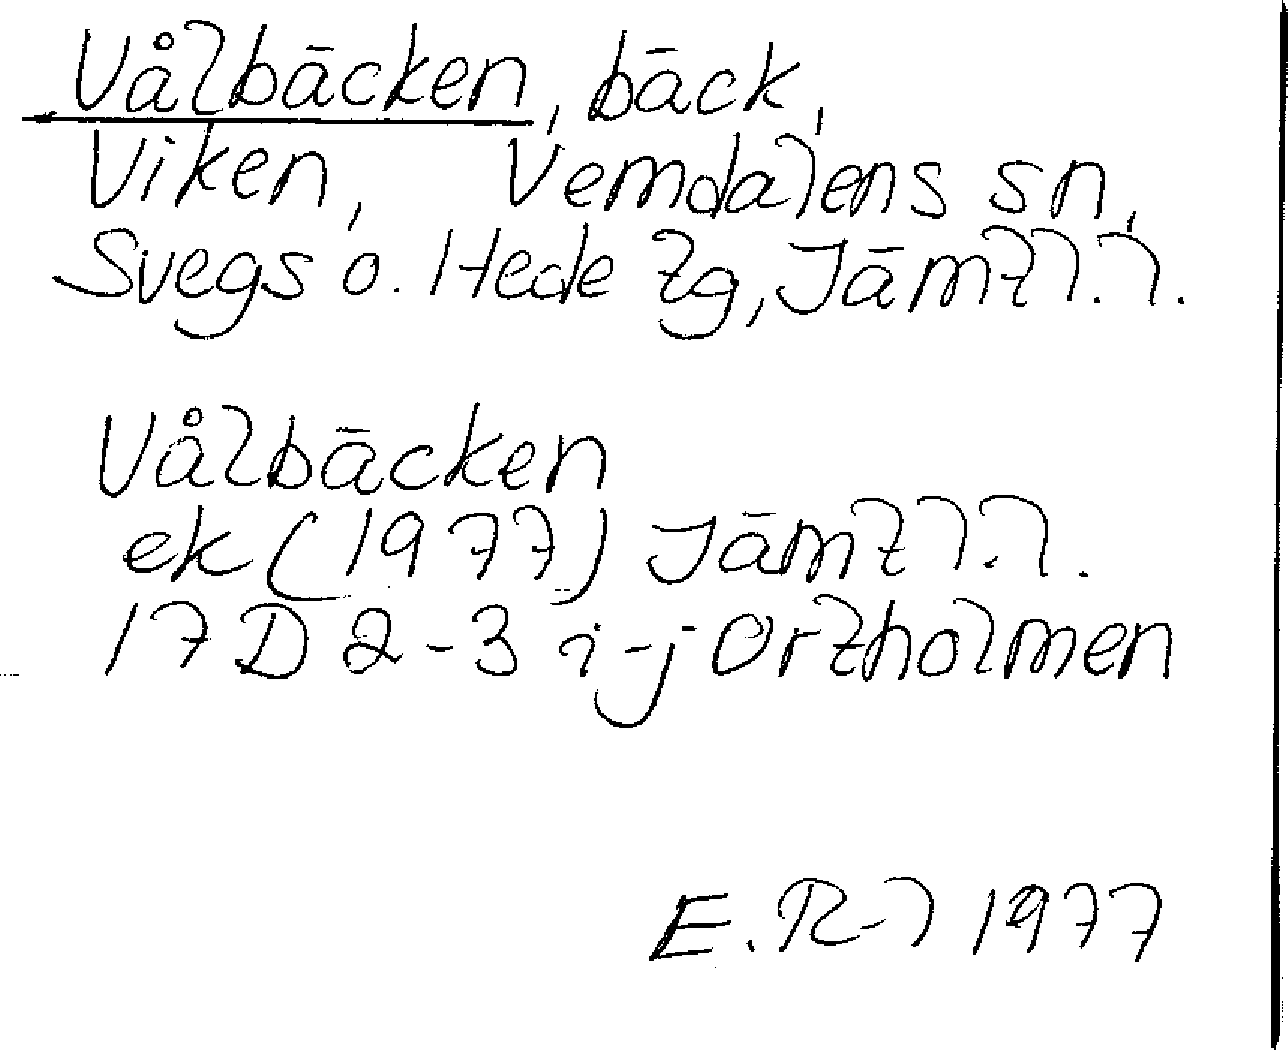 Vålbäcken, bäck,
Viken, Vemdalens sn,
Svegs o. Hede tg, Jämtl.l.
Vålbäcken
ek (1977) Jämtl.l.
17D 2-3 i-j Ortholmen
E. R-l 1977